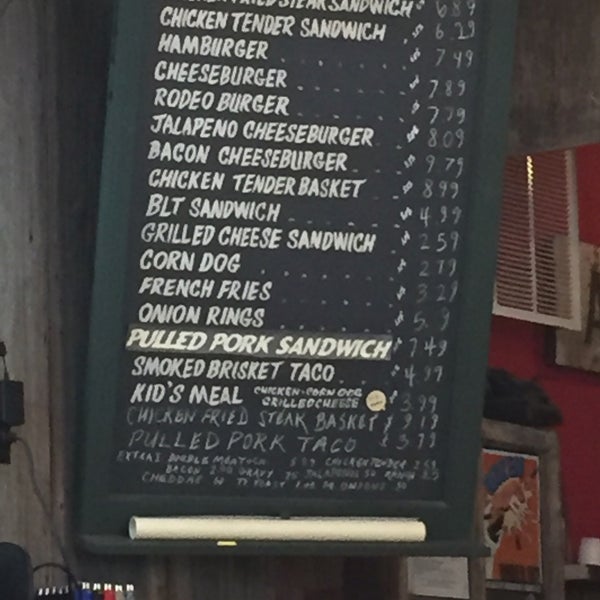 STEAK SANDWICH 6.89
CHICKEN TENDER SANDWICH 6.29
HAMBURGER 7.49
CHEESEBURGER 7.89
RODEO BURGER 7.79
JALAPENO CHEESEBURGER 8.09
BACON CHEESEBURGER 9.79
CHICKEN TENDER BASKET 8.99
BLT SANDWICH 4.99
GRILLED CHEESE SANDWICH 2.59
CORN DOG 2.79
FRENCH FRIES 3.29
ONION RINGS
PULLED PORK SANDWICH 7.49
SMOKED BRISKET TACO 4.99
KID'S MEAL CHICKEN-CORN DOG GRILLED CHEESE 3.99
CHICKEN FRIED STEAK BASKET $ 9.19
PULLED PORK TACO $ 3.79
EXTRAS DOUBLE MEAT CHICKEN TENDER
BACON GRAVY JALAPENO RANCH
CHEDDAR TOAST